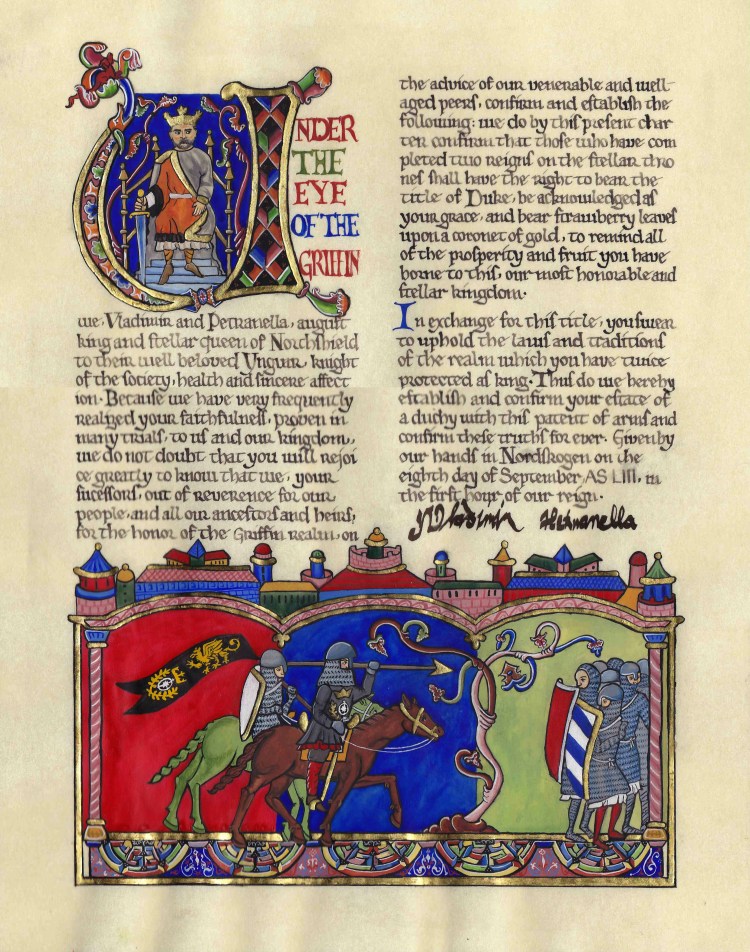 UNDER
THE
EYE
OF THE
GRIFFIN
we, Vladimir and Petranella, august
king and stellar queen of Northshield
to their well beloved Ungvir, knight
of the society, health and sincere affect
ion. Because we have very frequently
realized your faithfulness, proven in
many trials, to us and our kingdom,
we do not doubt that you will rejoi
ce greatly to know that we, your
sucessors, out of reverence for our
people, and all our ancestors and heirs,
for the honor of the Griffin realm, on
the advice of our venerable and well
aged peers, confirm and establish the
following: we do by this present char
ter confirm that those who have com
pleted two reigns on the stellar thro
nes shall have the right to bear the
title of Duke, be acknowledged as
your grace, and bear strawberry leaves
upon a coronet of gold, to remind all
of the prosperity and fruit you have
borne to this, our most honorable and
stellar kingdom.
In exchange for this title, you swear
to uphold the laws and traditions
of the realm which you have twice
protected as king. Thus do we hereby
establish and confirm your estate of
a duchy with this patent of arms and
confirm these truths for ever. Given by
our hands in Nordskogen on the
eighth day of September AS LIII, in
the first hour of our reign.
Vladimir Petranella